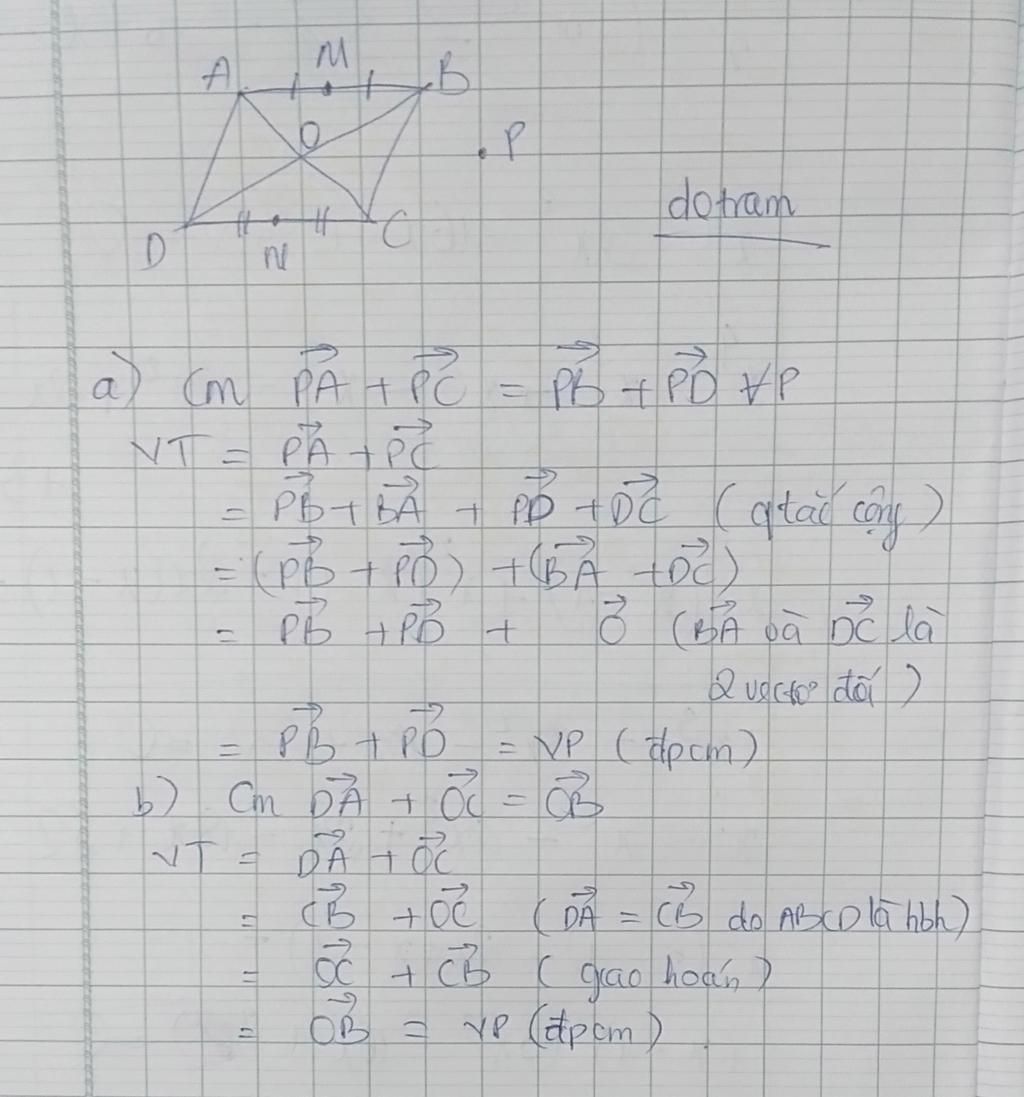 A M B
O
P
dotram
D N C
a) Cm $\overrightarrow{PA} + \overrightarrow{PC} = \overrightarrow{PB} + \overrightarrow{PD}$ ∀P
VT = $\overrightarrow{PA} + \overrightarrow{PC}$
= $\overrightarrow{PB} + \overrightarrow{BA} + \overrightarrow{PD} + \overrightarrow{DC}$ (qtắc cộng)
= $(\overrightarrow{PB} + \overrightarrow{PD}) + (\overrightarrow{BA} + \overrightarrow{DC})$
= $\overrightarrow{PB} + \overrightarrow{PD} + \vec{O}$ ($\overrightarrow{BA}$ và $\overrightarrow{DC}$ là
2 vectơ đối)
= $\overrightarrow{PB} + \overrightarrow{PD}$ = VP (đpcm)
b) Cm $\overrightarrow{DA} + \overrightarrow{OC} = \overrightarrow{OB}$
VT = $\overrightarrow{DA} + \overrightarrow{OC}$
= $\overrightarrow{CB} + \overrightarrow{OC}$ ($\overrightarrow{DA} = \overrightarrow{CB}$ do ABCD là hbh)
= $\overrightarrow{OC} + \overrightarrow{CB}$ (giao hoán)
= $\overrightarrow{OB}$ = VP (đpcm)